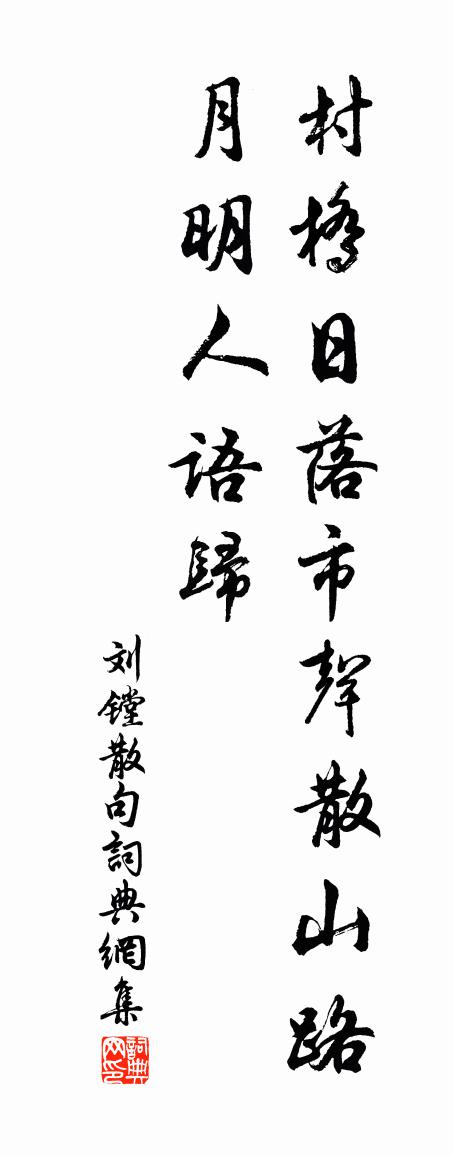 村橋日落市聲散山路
月明人語歸
刘镗散句詞典網集
詞典
网印